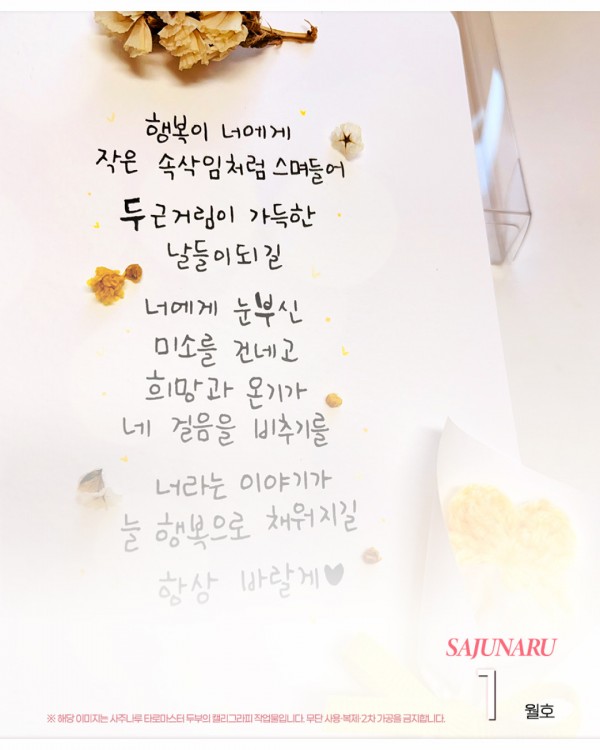 행복이 너에게
작은 속삭임처럼 스며들어
두근거림이 가득한
날들이되길
너에게 눈부신
미소를 건네고
희망과 온기가
네 걸음을 비추기를
너라는 이야기가
늘 행복으로 채워지길
항상 바랄게♥
SAJUNARU
1월호
※ 해당 이미지는 사주나루 타로마스터 두부의 캘리그라피 작업물입니다. 무단 사용·복제·2차 가공을 금지합니다.